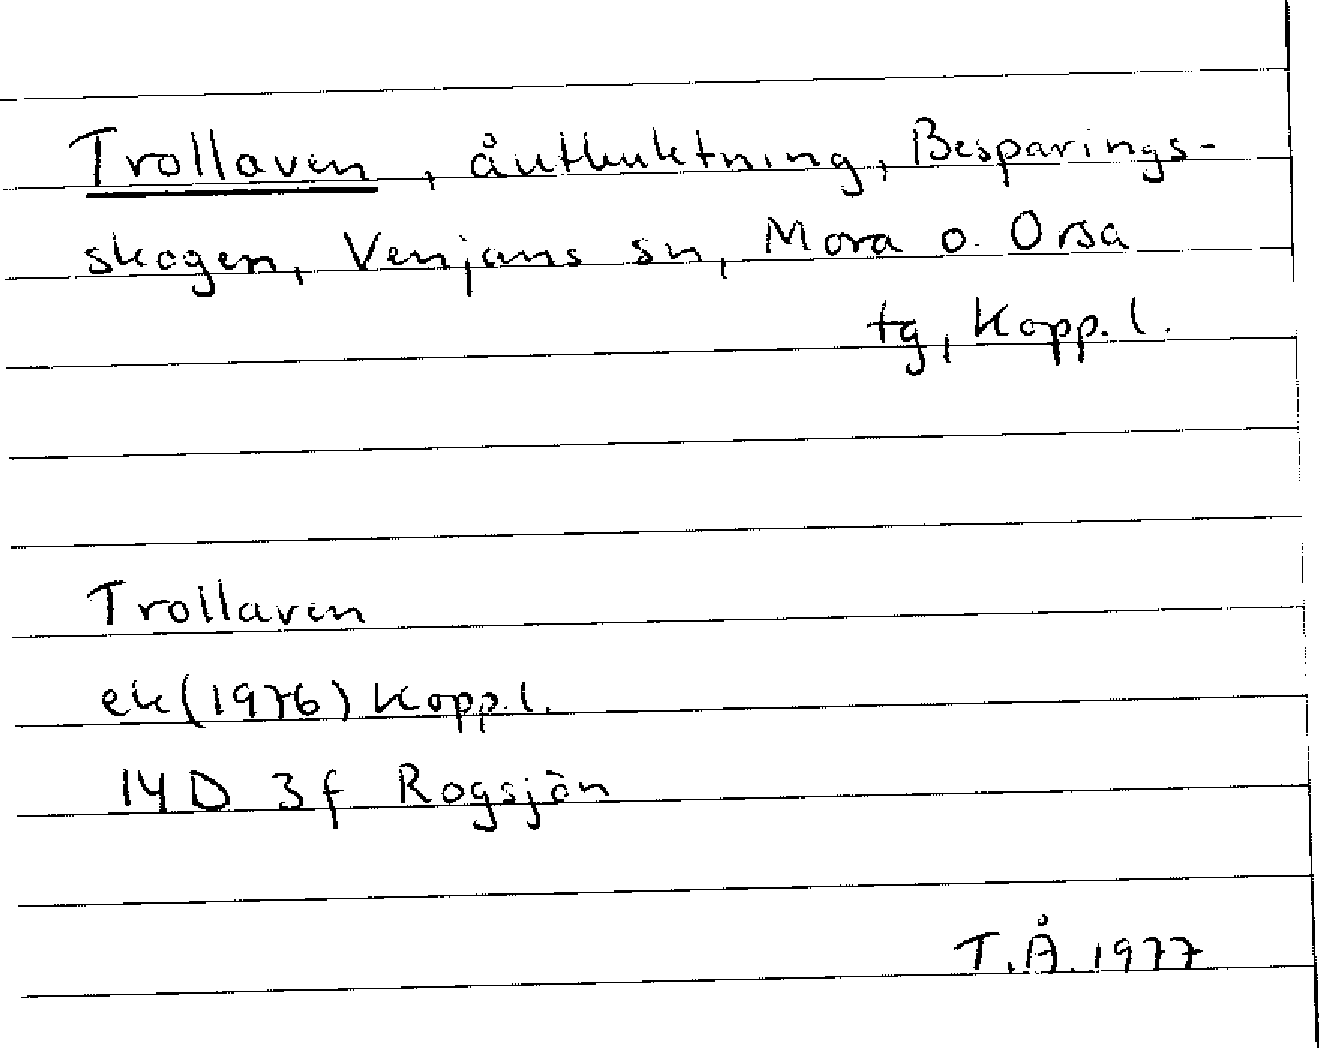 Trollaven, åutbuktning, Besparings-
skogen, Venjans sn, Mora o. Orsa
tg, Kopp. l.
Trollaven
ek(1976) Kopp.l.
14D 3f Rogsjön
T.Å. 1977